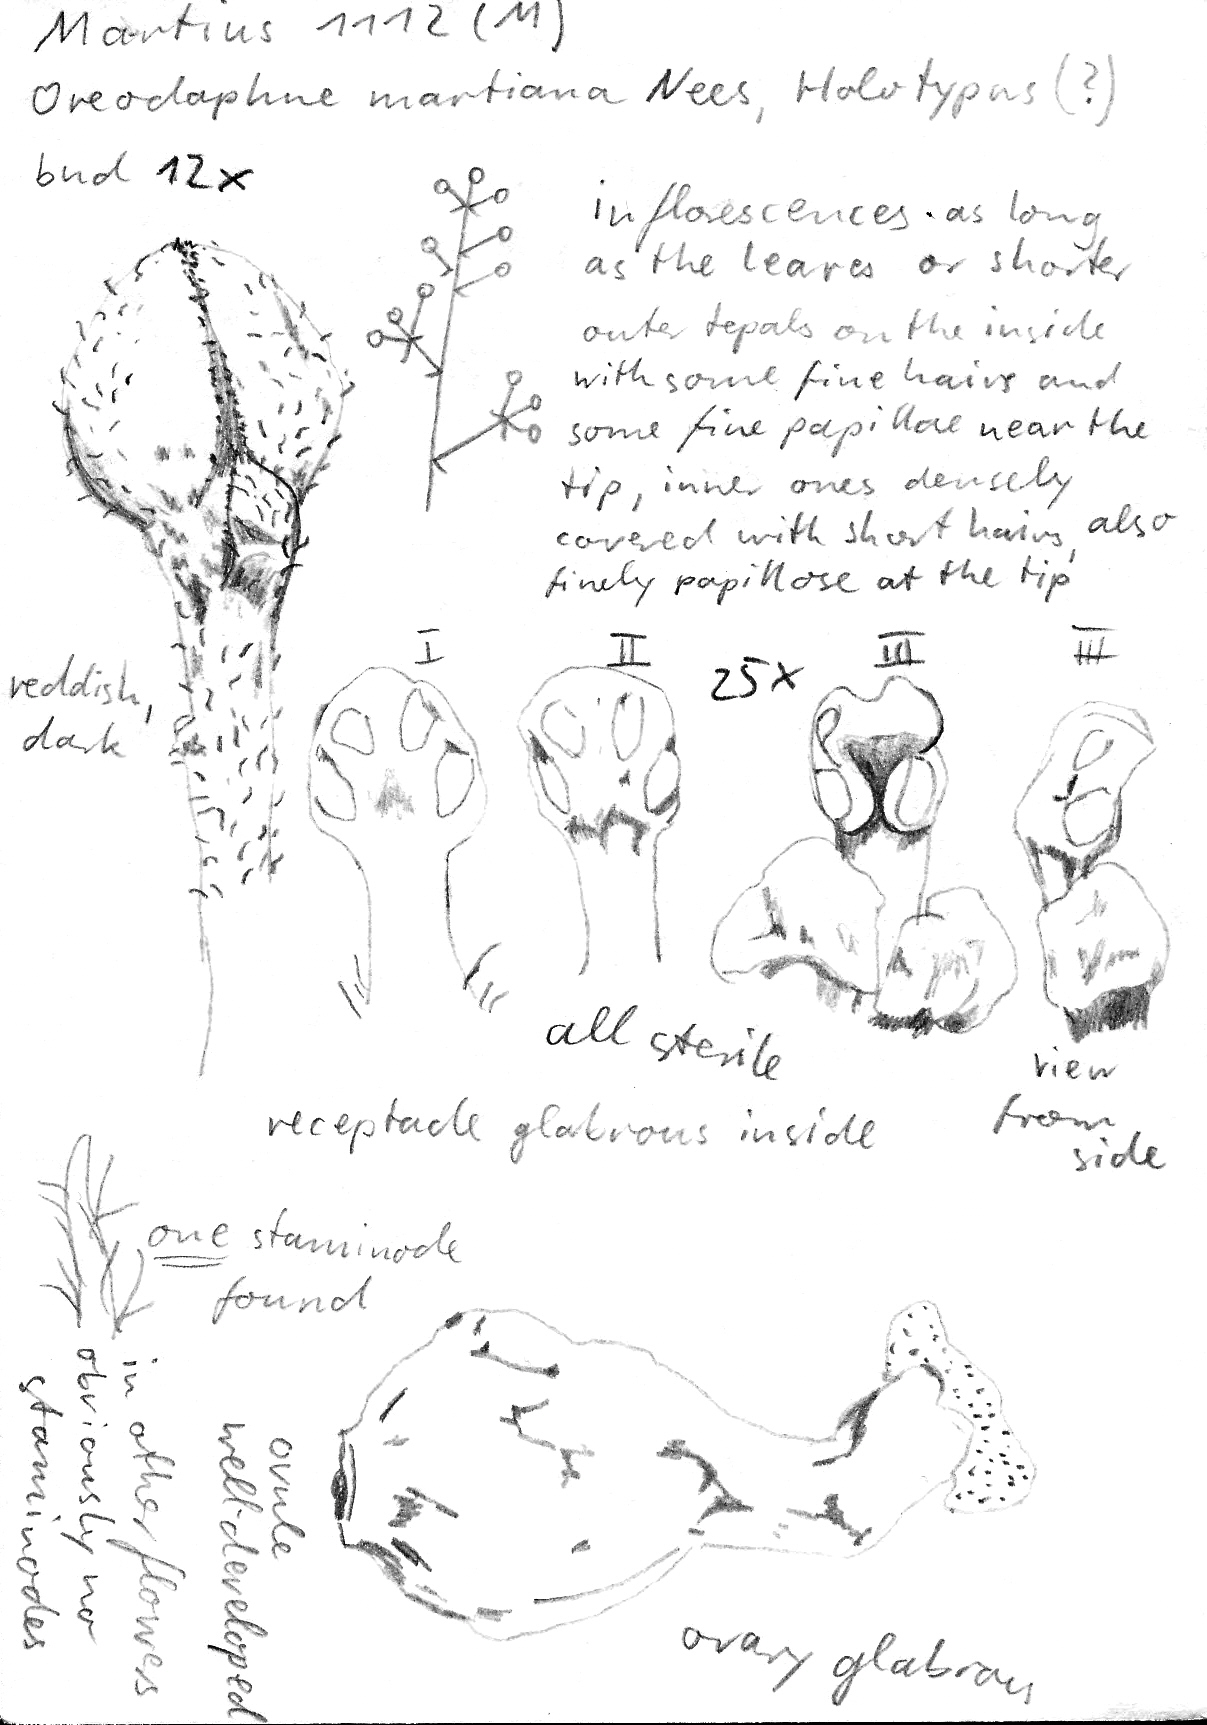 Martius 1112 (M)
Oreodaphne martiana Nees, Holotypus (?)
bud 12x
inflorescences as long
as the leaves or shorter
outer tepals on the inside
with some fine hairs and
some fine papillae near the
tip, inner ones densely
covered with short hairs, also
finely papillose at the tip
reddish,
dark
I
II
25x
III
III
all sterile
view
from
side
receptacle glabrous inside
one staminode
found
in other flowers
obviously no
staminodes
ovule
well-developed
ovary glabrous